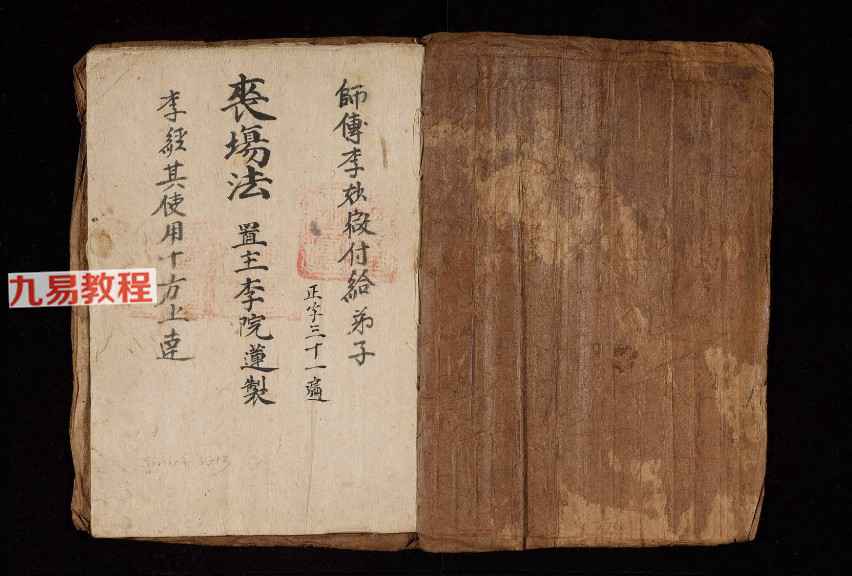 師傳李□□付給弟子
正字三十一遍
喪場法 置主李院蓮製
李經其使用十方上達
九易教程